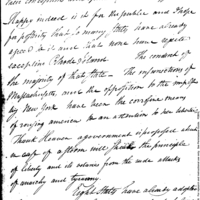 Happy indeed is it for the public and Perhaps
for posterity that so many States have already
agreed to it and that none have rejected
excepting Rhode Island. The conduct of
the majority of that State. The insurrections of
Massachusetts, and the opposition to the impost
by New York have been the
of rousing americans to an attention to their liberties
Thank Heaven a government is proposed which
in case of a storm will the principle
of liberty and its votaries from the rude attacks
of anarchy and tyranny
Eight States have already adopted